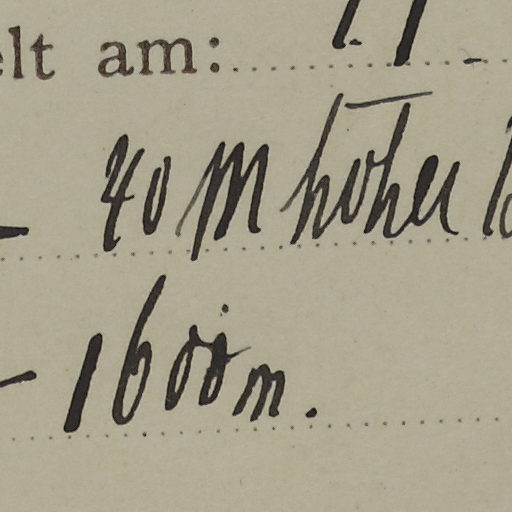 elt am:
- 40 m hoher
- 1600 m.